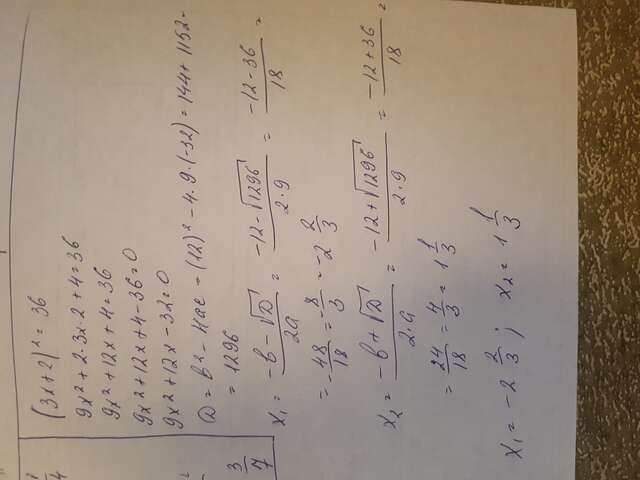 (3x+2)² = 36
9x² + 2·3x·2 + 4 = 36
9x² + 12x + 4 = 36
9x² + 12x + 4 - 36 = 0
9x² + 12x - 32 = 0
D = b² - 4ac = (12)² - 4·9·(-32) = 144 + 1152 =
= 1296
x₁ = (-b - √D)/(2a) = (-12 - √1296)/(2·9) = (-12 - 36)/18 =
= -48/18 = -8/3 = -2 2/3
x₂ = (-b + √D)/(2·a) = (-12 + √1296)/(2·9) = (-12 + 36)/18 =
= 24/18 = 4/3 = 1 1/3
x₁ = -2 2/3 ; x₂ = 1 1/3
3/7